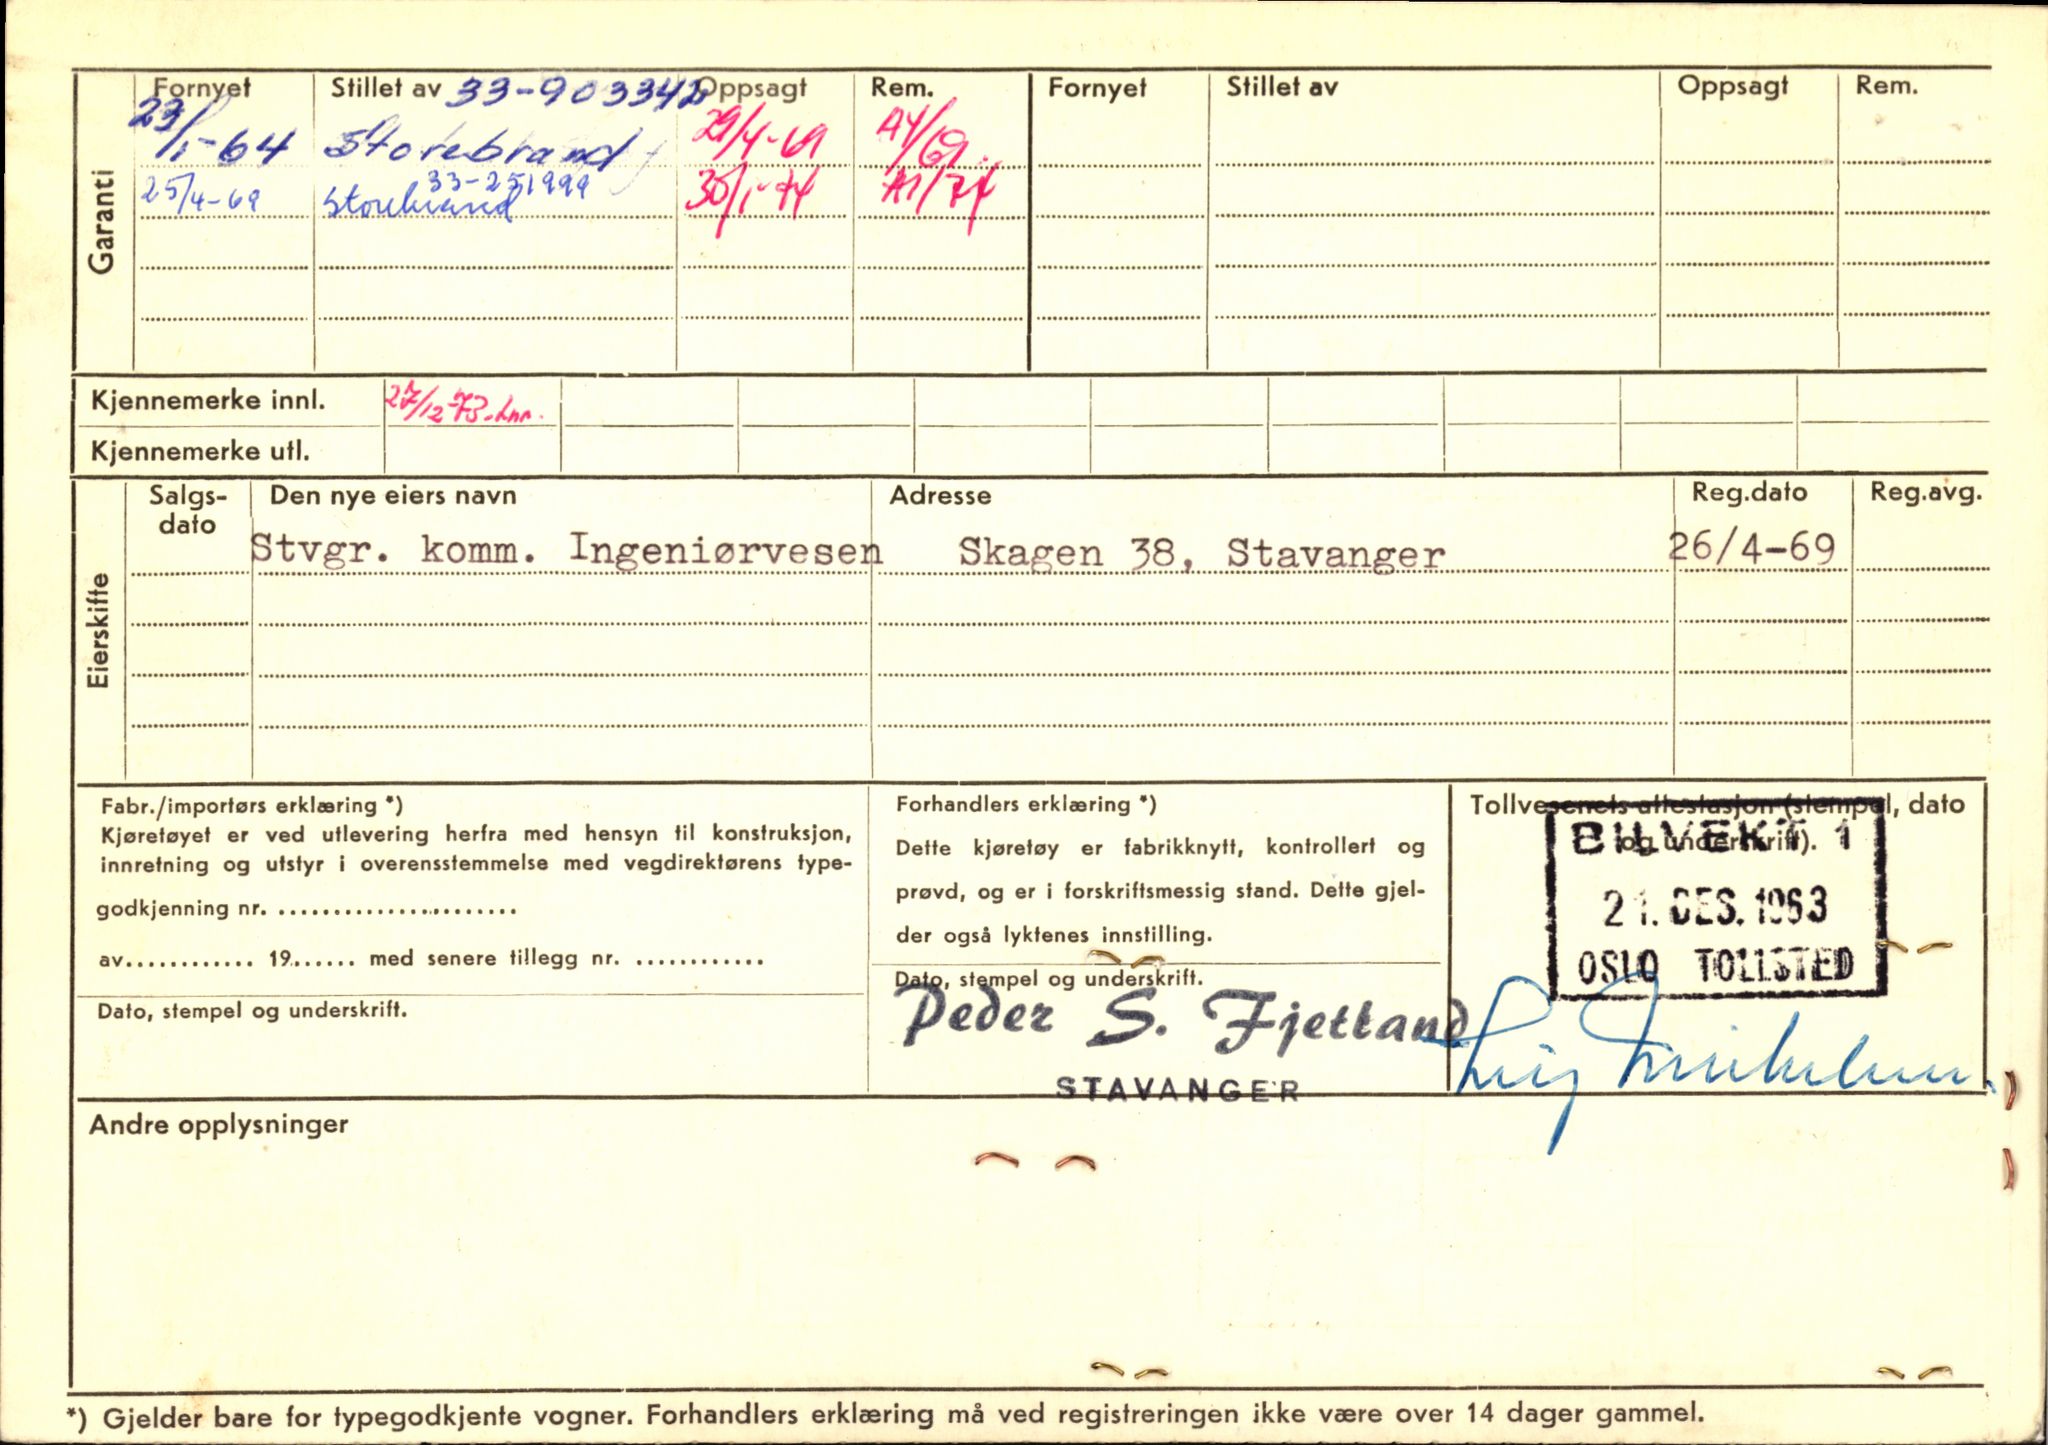 Garanti
Fornyet Stillet av 33-903342 Oppsagt Rem. Fornyet Stillet av Oppsagt Rem.
23/1-64 Storebrand 29/4-69 A4/69
33-251999
25/4-69 Storebrand 30/1-74 A1/74
Kjennemerke innl. 27/12-73
Kjennemerke utl.
Eierskifte
Salgs-dato Den nye eiers navn Adresse Reg.dato Reg.avg.
Stvgr. komm. Ingeniørvesen Skagen 38, Stavanger 26/4-69
Fabr./importørs erklæring *)
Kjøretøyet er ved utlevering herfra med hensyn til konstruksjon,
innretning og utstyr i overensstemmelse med vegdirektørens type-
godkjenning nr. ......................
av............ 19...... med senere tillegg nr. ............
Dato, stempel og underskrift.
Forhandlers erklæring *)
Dette kjøretøy er fabrikknytt, kontrollert og
prøvd, og er i forskriftsmessig stand. Dette gjel-
der også lyktenes innstilling.
Dato, stempel og underskrift.
Peder S. Fjetland
STAVANGER
Tollvesenets attestasjon (stempel, dato
og underskrift).
BILVEKT 1
21. DES. 1963
OSLO TOLLSTED
Andre opplysninger
*) Gjelder bare for typegodkjente vogner. Forhandlers erklæring må ved registreringen ikke være over 14 dager gammel.